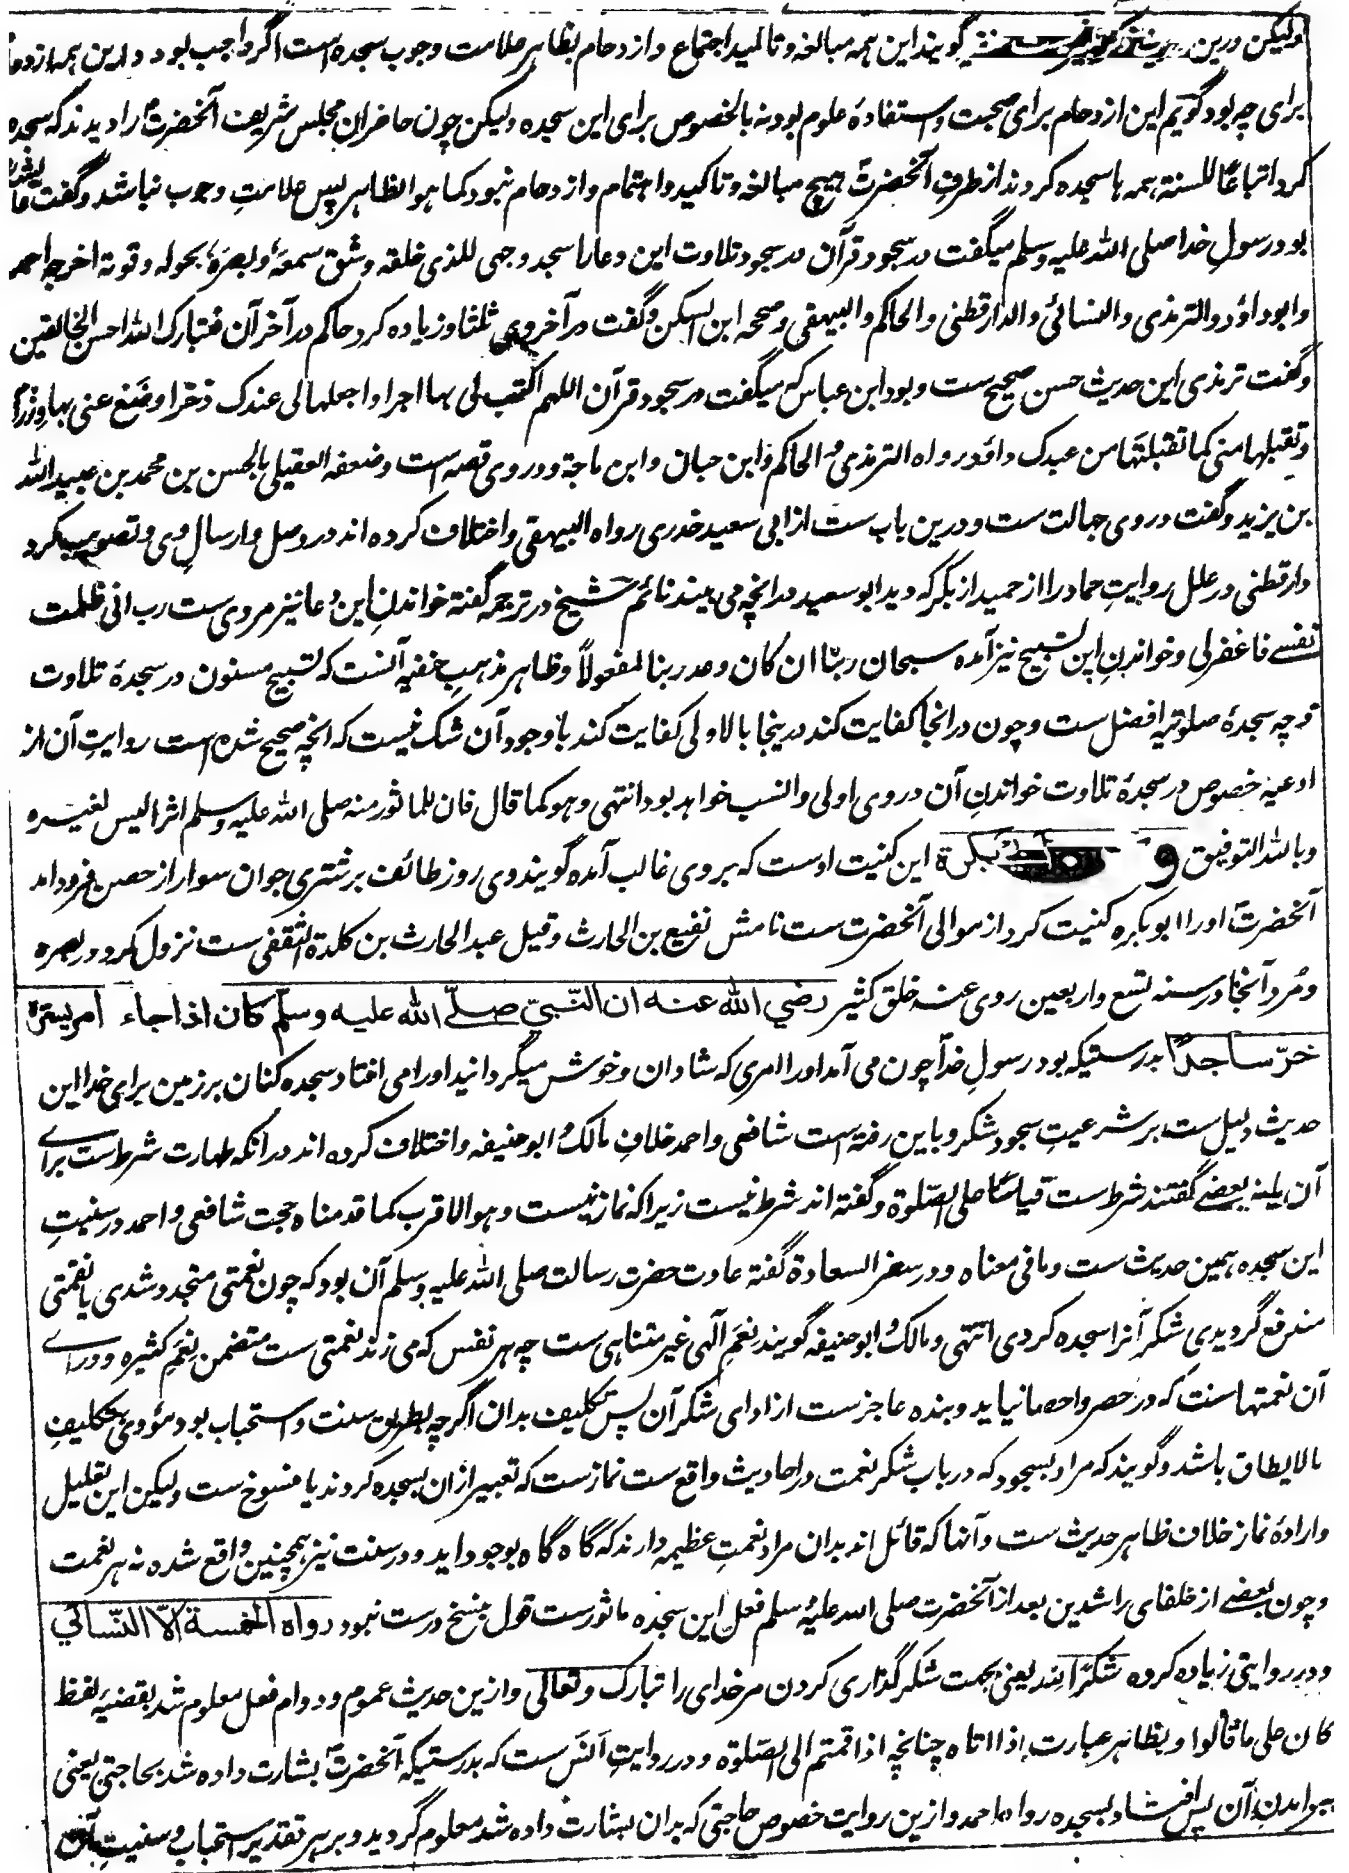 ولیکن درین گویند این همه مبالغه و تاکید اجتماع و ازدحام بظاهر علامت وجوب سجده است اگر واجب نبود و این همه ازدحام
برای چه بود گوییم این ازدحام برای صحبت و استفادهٔ علوم بود نه بالخصوص برای این سجده ولیکن چون حاضران مجلس شریف آنحضرت را دیدند که سجده
کرد اتباعًا للسنة همه ها سجده کردند از طرف آنحضرت هیچ مبالغه و تاکید و اهتمام و ازدحام نبود کما هو الظاهر پس علامتِ وجوب نباشد و گفت عائشه
بود رسولِ خدا صلی الله علیه وسلم میگفت در سجود قرآن در سجود تلاوت این دعا را سجد وجهی للذی خلقه و شق سمعهٗ و بصرهٗ بحوله و قوته اخرجه احمد
و ابوداؤد والترمذی والنسائی والدارقطنی والحاکم والبیهقی وصححه ابن السکن وگفت در آخر وی ثلثا و زیاده کرد حاکم در آخر آن فتبارک الله احسن الخالقین
وگفت ترمذی این حدیث حسن صحیح ست و بود ابن عباس که میگفت در سجود قرآن اللهم اکتب لی بها اجرا واجعلها لی عندک ذخرا وضع عنی بها وزرا
وتقبلها منی کما تقبلتها من عبدک داؤد رواه الترمذی والحاکم وابن حبان وابن ماجة و در وی قصه است وضعفه العقیلی بالحسن بن محمد بن عبیدالله
بن یزید وگفت در وی جهالت ست و درین باب ست از ابی سعید خدری رواه البیهقی و اختلاف کرده اند در وصل و ارسالِ وی و تصویب کرد
دارقطنی در علل روایتِ حماد را از حمید از بکر که دید ابوسعید در انچه می بیند نائم شیخ در ترجمه گفته خواندنِ این دعا نیز مروی ست رب انی ظلمت
نفسے فاغفرلی و خواندنِ این تسبیح نیز آمده سبحان ربّنا ان کان وعد ربنا لمفعولاً و ظاهر مذهبِ حنفیه آنست که تسبیح مسنون در سجدهٔ تلاوت
و چه سجدهٔ صلوتیه افضل ست و چون در انجا کفایت کند در ینجا بالاولی کفایت کند با وجود آن شک نیست که انچه صحیح شده است روایتِ آن از
ادعیه خصوص در سجدهٔ تلاوت خواندنِ آن در وی اولی و انسب خواهد بود انتهی وهو کما قال فان للماثور منه صلی الله علیه وسلم اثرا لیس لغیره
وبالله التوفیق و بکرة این کنیت اوست که بر وی غالب آمده گویند وی روز طائف بر شتری جوان سوار از حصن فرود آمد
آنحضرت او را ابوبکره کنیت کرد از موالی آنحضرت ست نامش نفیع بن الحارث و قیل عبدالحارث بن کلدة الثقفی ست نزول کرد در بصره
و مُرد آنجا در سنه تسع و اربعین روی عنه خلق کثیر رضی الله عنه ان النّبی صلّے الله علیه وسلّم کان اذا جاء امر یسرّه
خرّ ساجدًا بدرستیکه بود رسولِ خدا چون می آمد او را امری که شادان و خوش میگردانید او را می افتاد سجده کنان بر زمین برای خدا این
حدیث دلیل ست بر شرعیتِ سجود شکر و باین رفته است شافعی و احمد خلافِ مالک و ابوحنیفه و اختلاف کرده اند در انکه طهارت شرط ست براے
آن یانه بعضے گفتند شرط ست قیاسًا علی الصّلوة و گفته اند شرط نیست زیراکه نماز نیست وهو الاقرب کما قدمناه حجت شافعی و احمد در سنیتِ
این سجده همین حدیث ست و مافی معناه و در سفر السعادة گفته عادت حضرت رسالت صلی الله علیه وسلم آن بود که چون نعمتی متجدد شدی یا نقمتی
مندفع گردیدی شکر آنرا سجده کردی انتهی و مالک و ابوحنیفه گویند نِعَم الٰهی غیر متناهی ست چه هر نفس که می زند نعمتی ست متضمن نِعَمِ کثیره و وراے
آن نعمتهاست که در حصر و احصا نیاید و بنده عاجز ست از ادای شکر آن پس تکلیف بدان اگرچه بطریق سنت و استحباب بود مؤدی بتکلیفِ
مالایطاق باشد و گویند که مراد بسجود که در باب شکر نعمت در احادیث واقع ست نماز ست که تعبیر از آن بسجده کردند یا منسوخ ست ولیکن این تعلیل
و ارادهٔ نماز خلاف ظاهر حدیث ست و آنها که قائل اند بدان مراد نعمتِ عظیمه دارند که گاه گاه بوجود آید و در سنت نیز همچنین واقع شده نه هر نعمت
و چون بعضے از خلفای راشدین بعد از آنحضرت صلی الله علیه وسلم فعلِ این سجده ماثور ست قول بنسخ درست نبود رواه الخمسة الّا النّسائی
و در روایتی زیاده کرده شکرًا لله یعنی بجهت شکر گذاری کردن مر خدای را تبارک و تعالی و ازین حدیث عموم و دوام فعل معلوم شد بقضیهٔ لفظ
کان علی ما قالوا و بظاهر عبارت اذا اتاه چنانچه اذا قمتم الی الصّلوة و در روایتِ اَنَس ست که بدرستیکه آنحضرت بشارت داده شد بحاجتی یعنی
ببرآمدنِ آن پس افتاد بسجده رواه احمد و ازین روایت خصوص حاجتی که بدان بشارت داده شد معلوم گردید و بر هر تقدیر استحباب و سنیتِ آن